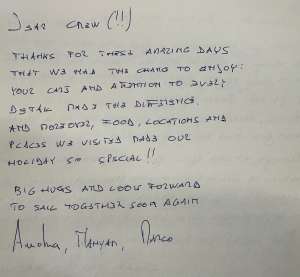 Dear crew (!!)
THANKS FOR THESE AMAZING DAYS
THAT WE HAD THE CHANC TO ENJOY:
YOUR CARE AND ATENTION TO EVERY
DETAIL MADE THE DIFFERENCE.
AND MOREOVER, FOOD, LOCATIONS AND
PLACES WE VISITED MADE OUR
HOLIDAY SO SPECIAL!!
BIG HUGS AND LOOK FORWARD
TO SAIL TOGETHER SOON AGAIN
MARCO